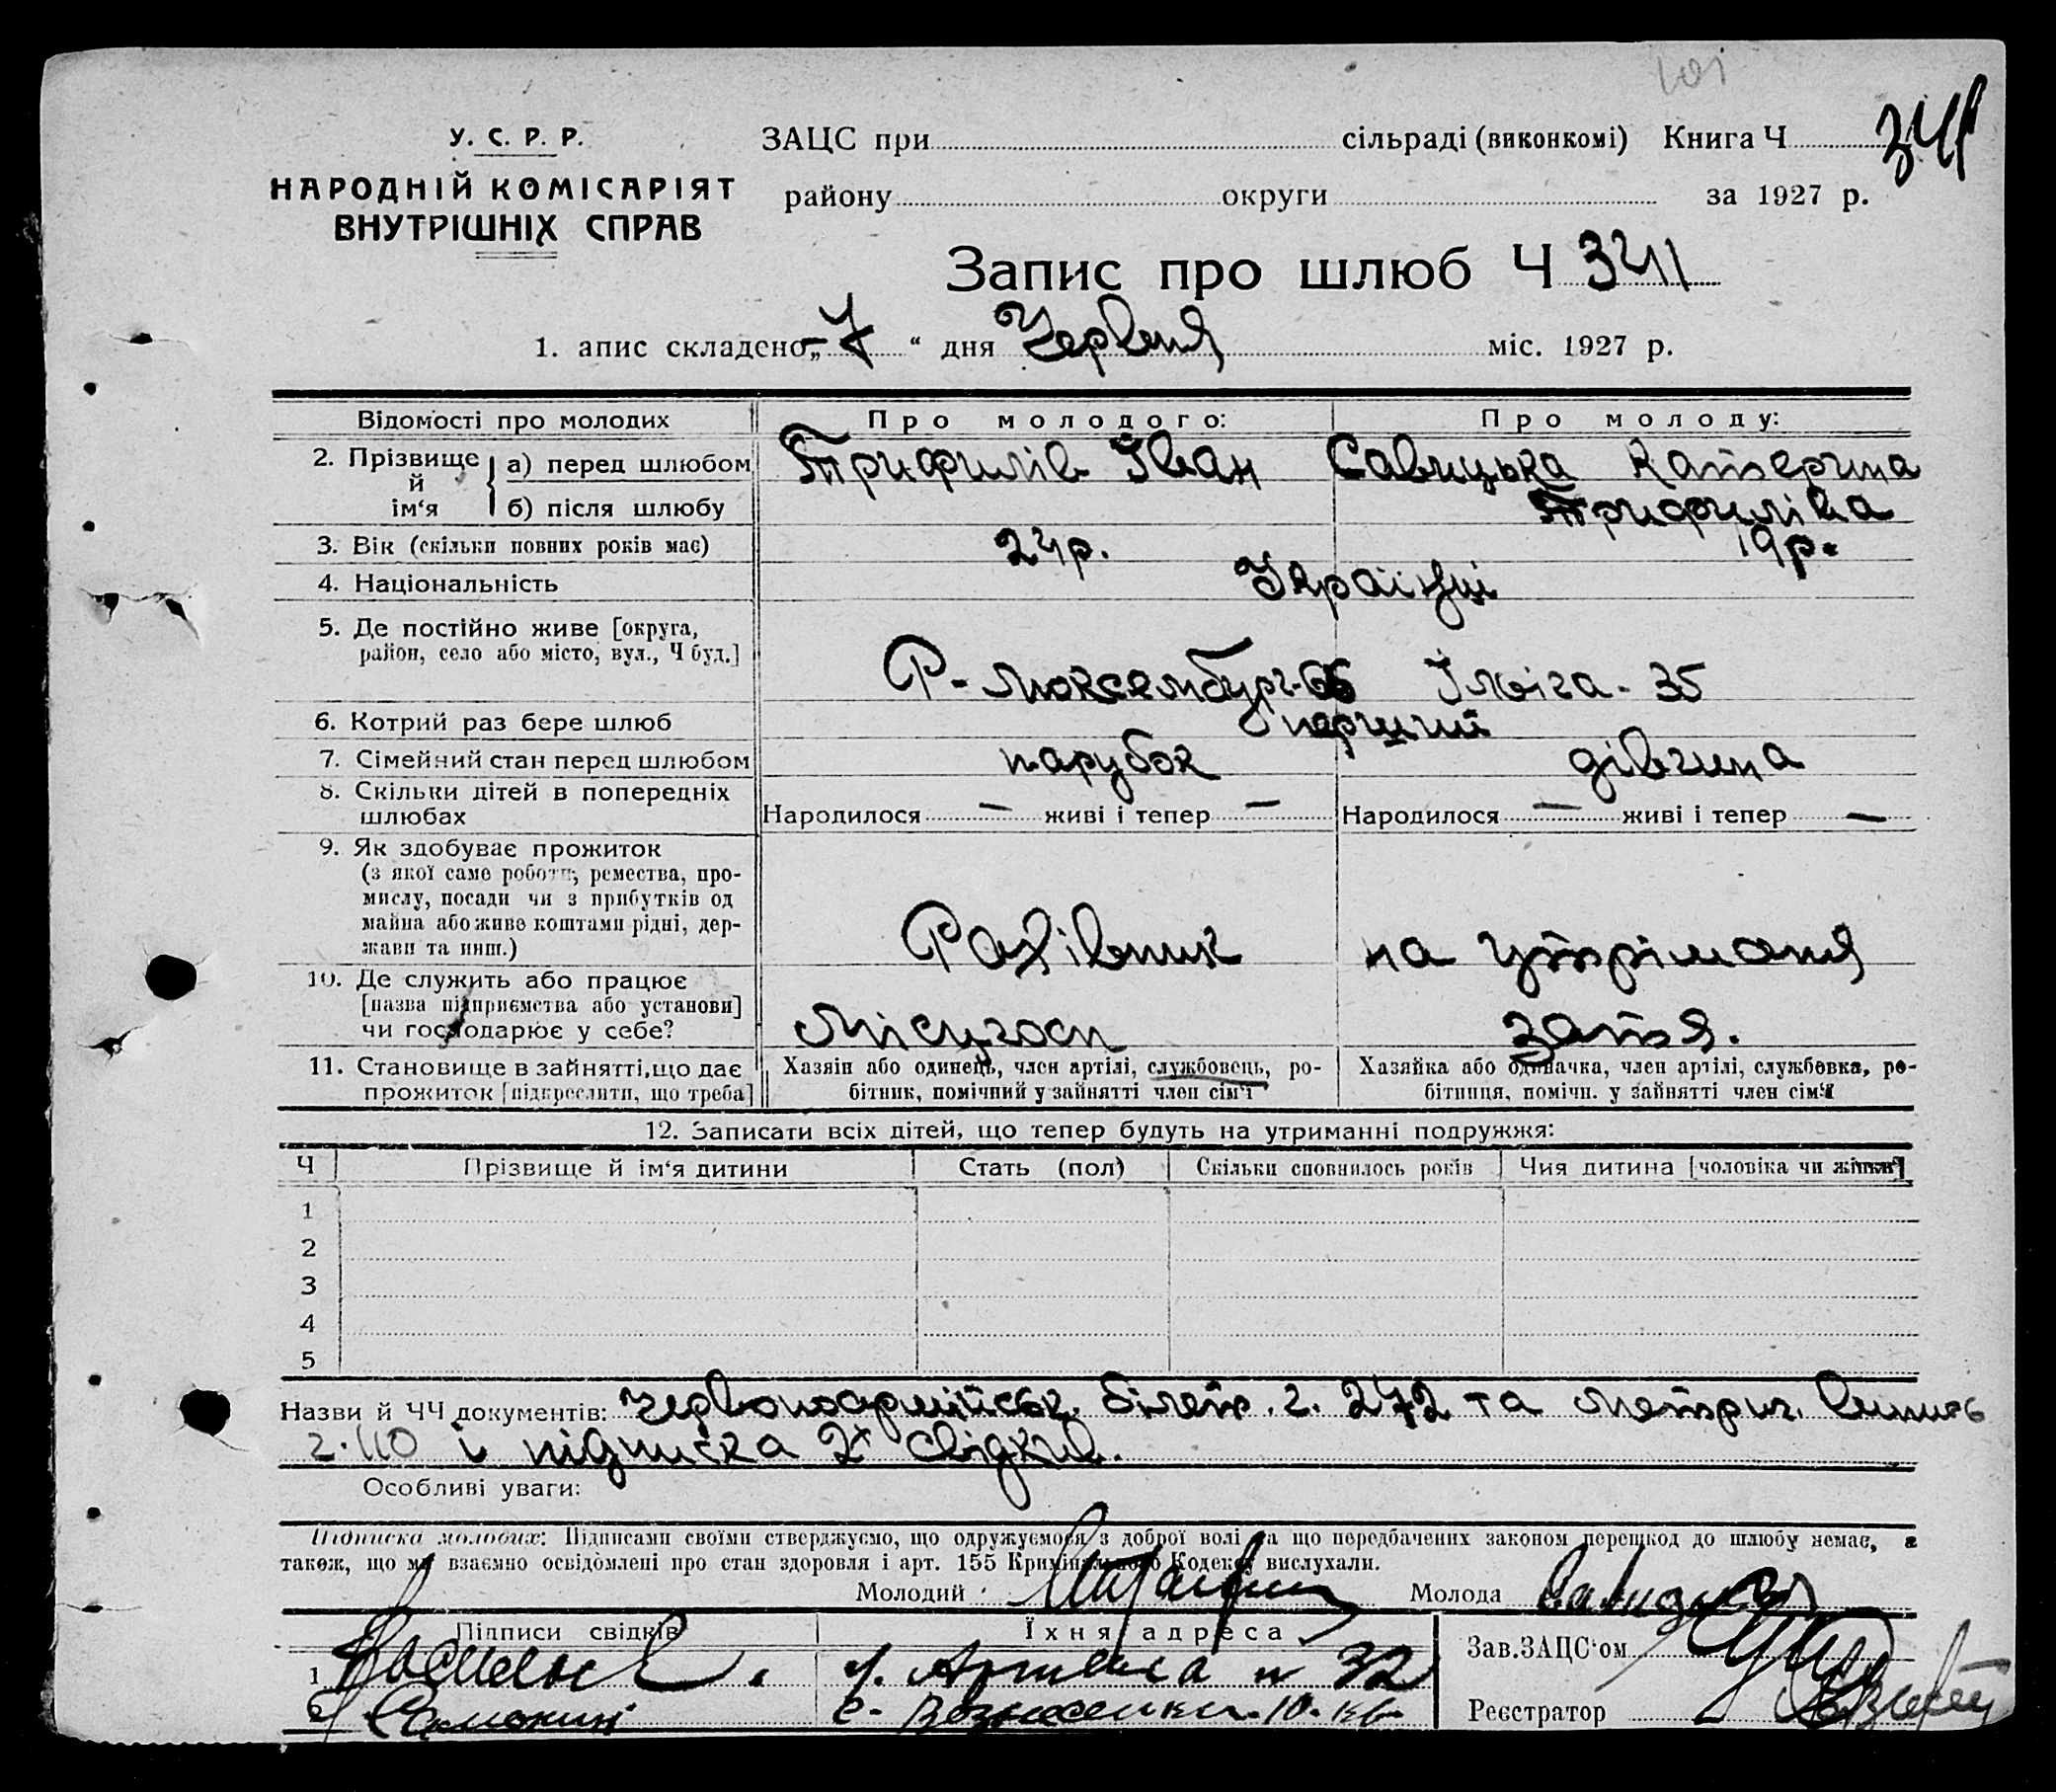 101
У. С. Р. Р.
НАРОДНІЙ КОМІСАРІЯТ
ВНУТРІШНІХ СПРАВ
ЗАЦС при сільраді (виконкомі) Книга Ч 341
району округи за 1927 р.
Запис про шлюб Ч 341
1. апис складено „7“ дня Червня міс. 1927 р.
Відомості про молодих Про молодого: Про молоду:
2. Прізвище й ім‘я а) перед шлюбом Трифилів Іван Савицька Катерина
б) після шлюбу Трифиліва
3. Вік (скільки повних років має) 24р. 19р.
4. Національність Українці
5. Де постійно живе [округа,
район, село або місто, вул., Ч буд.] Р-Люксембург-66 Ілвіга-35
6. Котрий раз бере шлюб перший
7. Сімейний стан перед шлюбом парубок дівчина
8. Скільки дітей в попередніх
шлюбах Народилося — живі і тепер — Народилося — живі і тепер —
9. Як здобуває прожиток
(з якої саме роботи, ремества, про-
мислу, посади чи з прибутків од
майна або живе коштами рідні, дер-
жави та инш.) Рахівник на утріманя
10. Де служить або працює
[назва підприємства або установи]
чи господарює у себе? Місцгосп затя.
11. Становище в зайнятті, що дає
прожиток [підкреслити, що треба]
Хазяін або одинець, член артілі, службовець, ро-
бітник, помічний у зайнятті член сім‘ї
Хазяйка або одиначка, член артілі, службовка, ро-
бітниця, помічн. у зайнятті член сім‘ї
12. Записати всіх дітей, що тепер будуть на утриманні подружжя:
Ч Прізвище й ім‘я дитини Стать (пол) Скільки сповнилось років Чия дитина [чоловіка чи жінки]
1
2
3
4
5
Назви й ЧЧ документів: червоноармійськ. білет. ч. 272 та метрич. випись
ч. 110 і підписка 2х свідків.
Особливі уваги:
Підписка молодих: Підписами своїми стверджуємо, що одружуємося з доброї волі та що передбачених законом перешкод до шлюбу немає, а
також, що ми взаємно освідомлені про стан здоровля і арт. 155 Кримінального Кодексу вислухали.
Молодий Молода
Підписи свідків Їхня адреса Зав. ЗАЦС‘ом
1 у. Артема н 32
2 с. Вознесенка 10. кв. Реєстратор